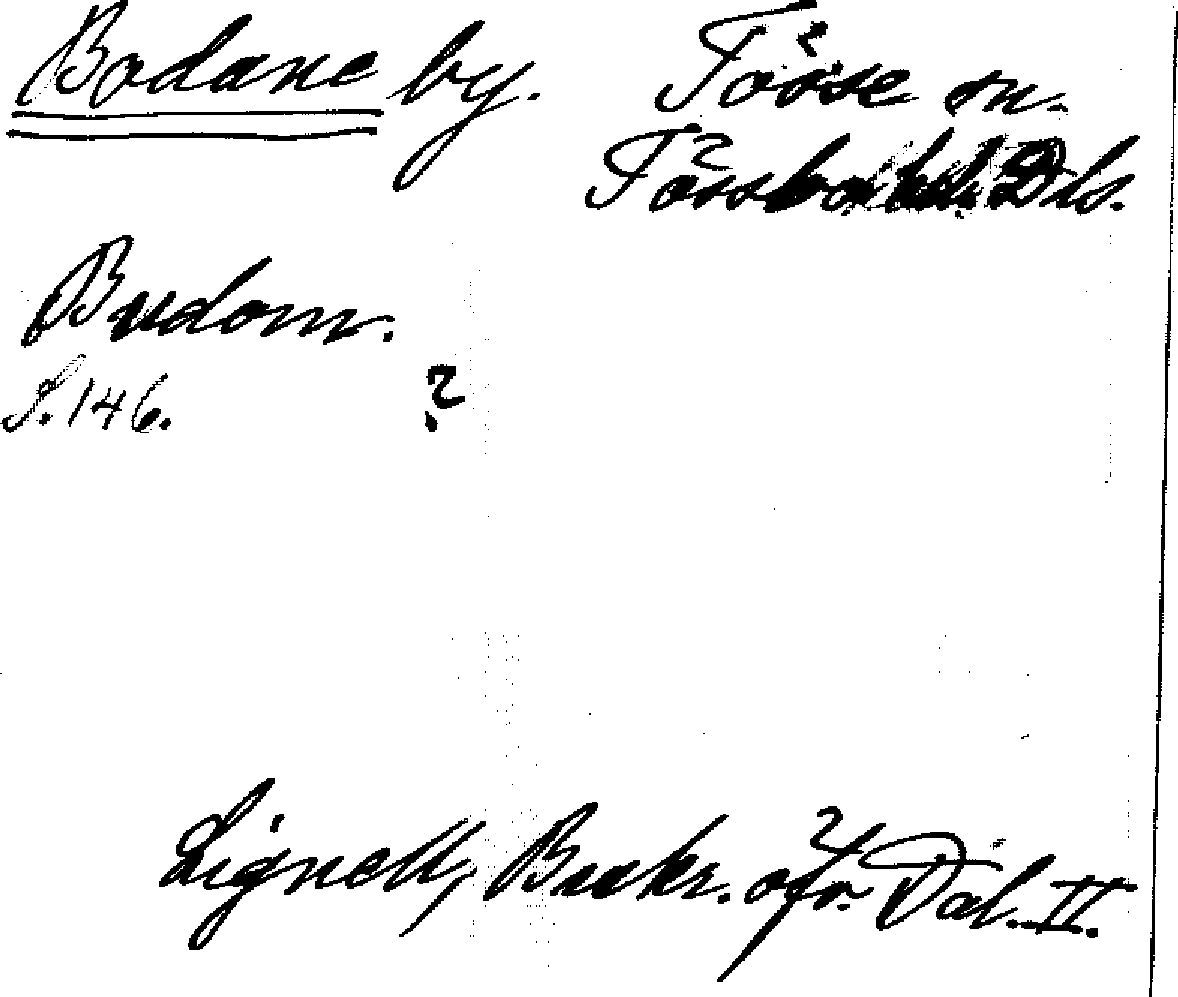 Bodane by. Tösse sn.
Tössbo hd. Dls.
Budom.
S. 146. ?
Lignell, Beskr. öfr. Dal. II.